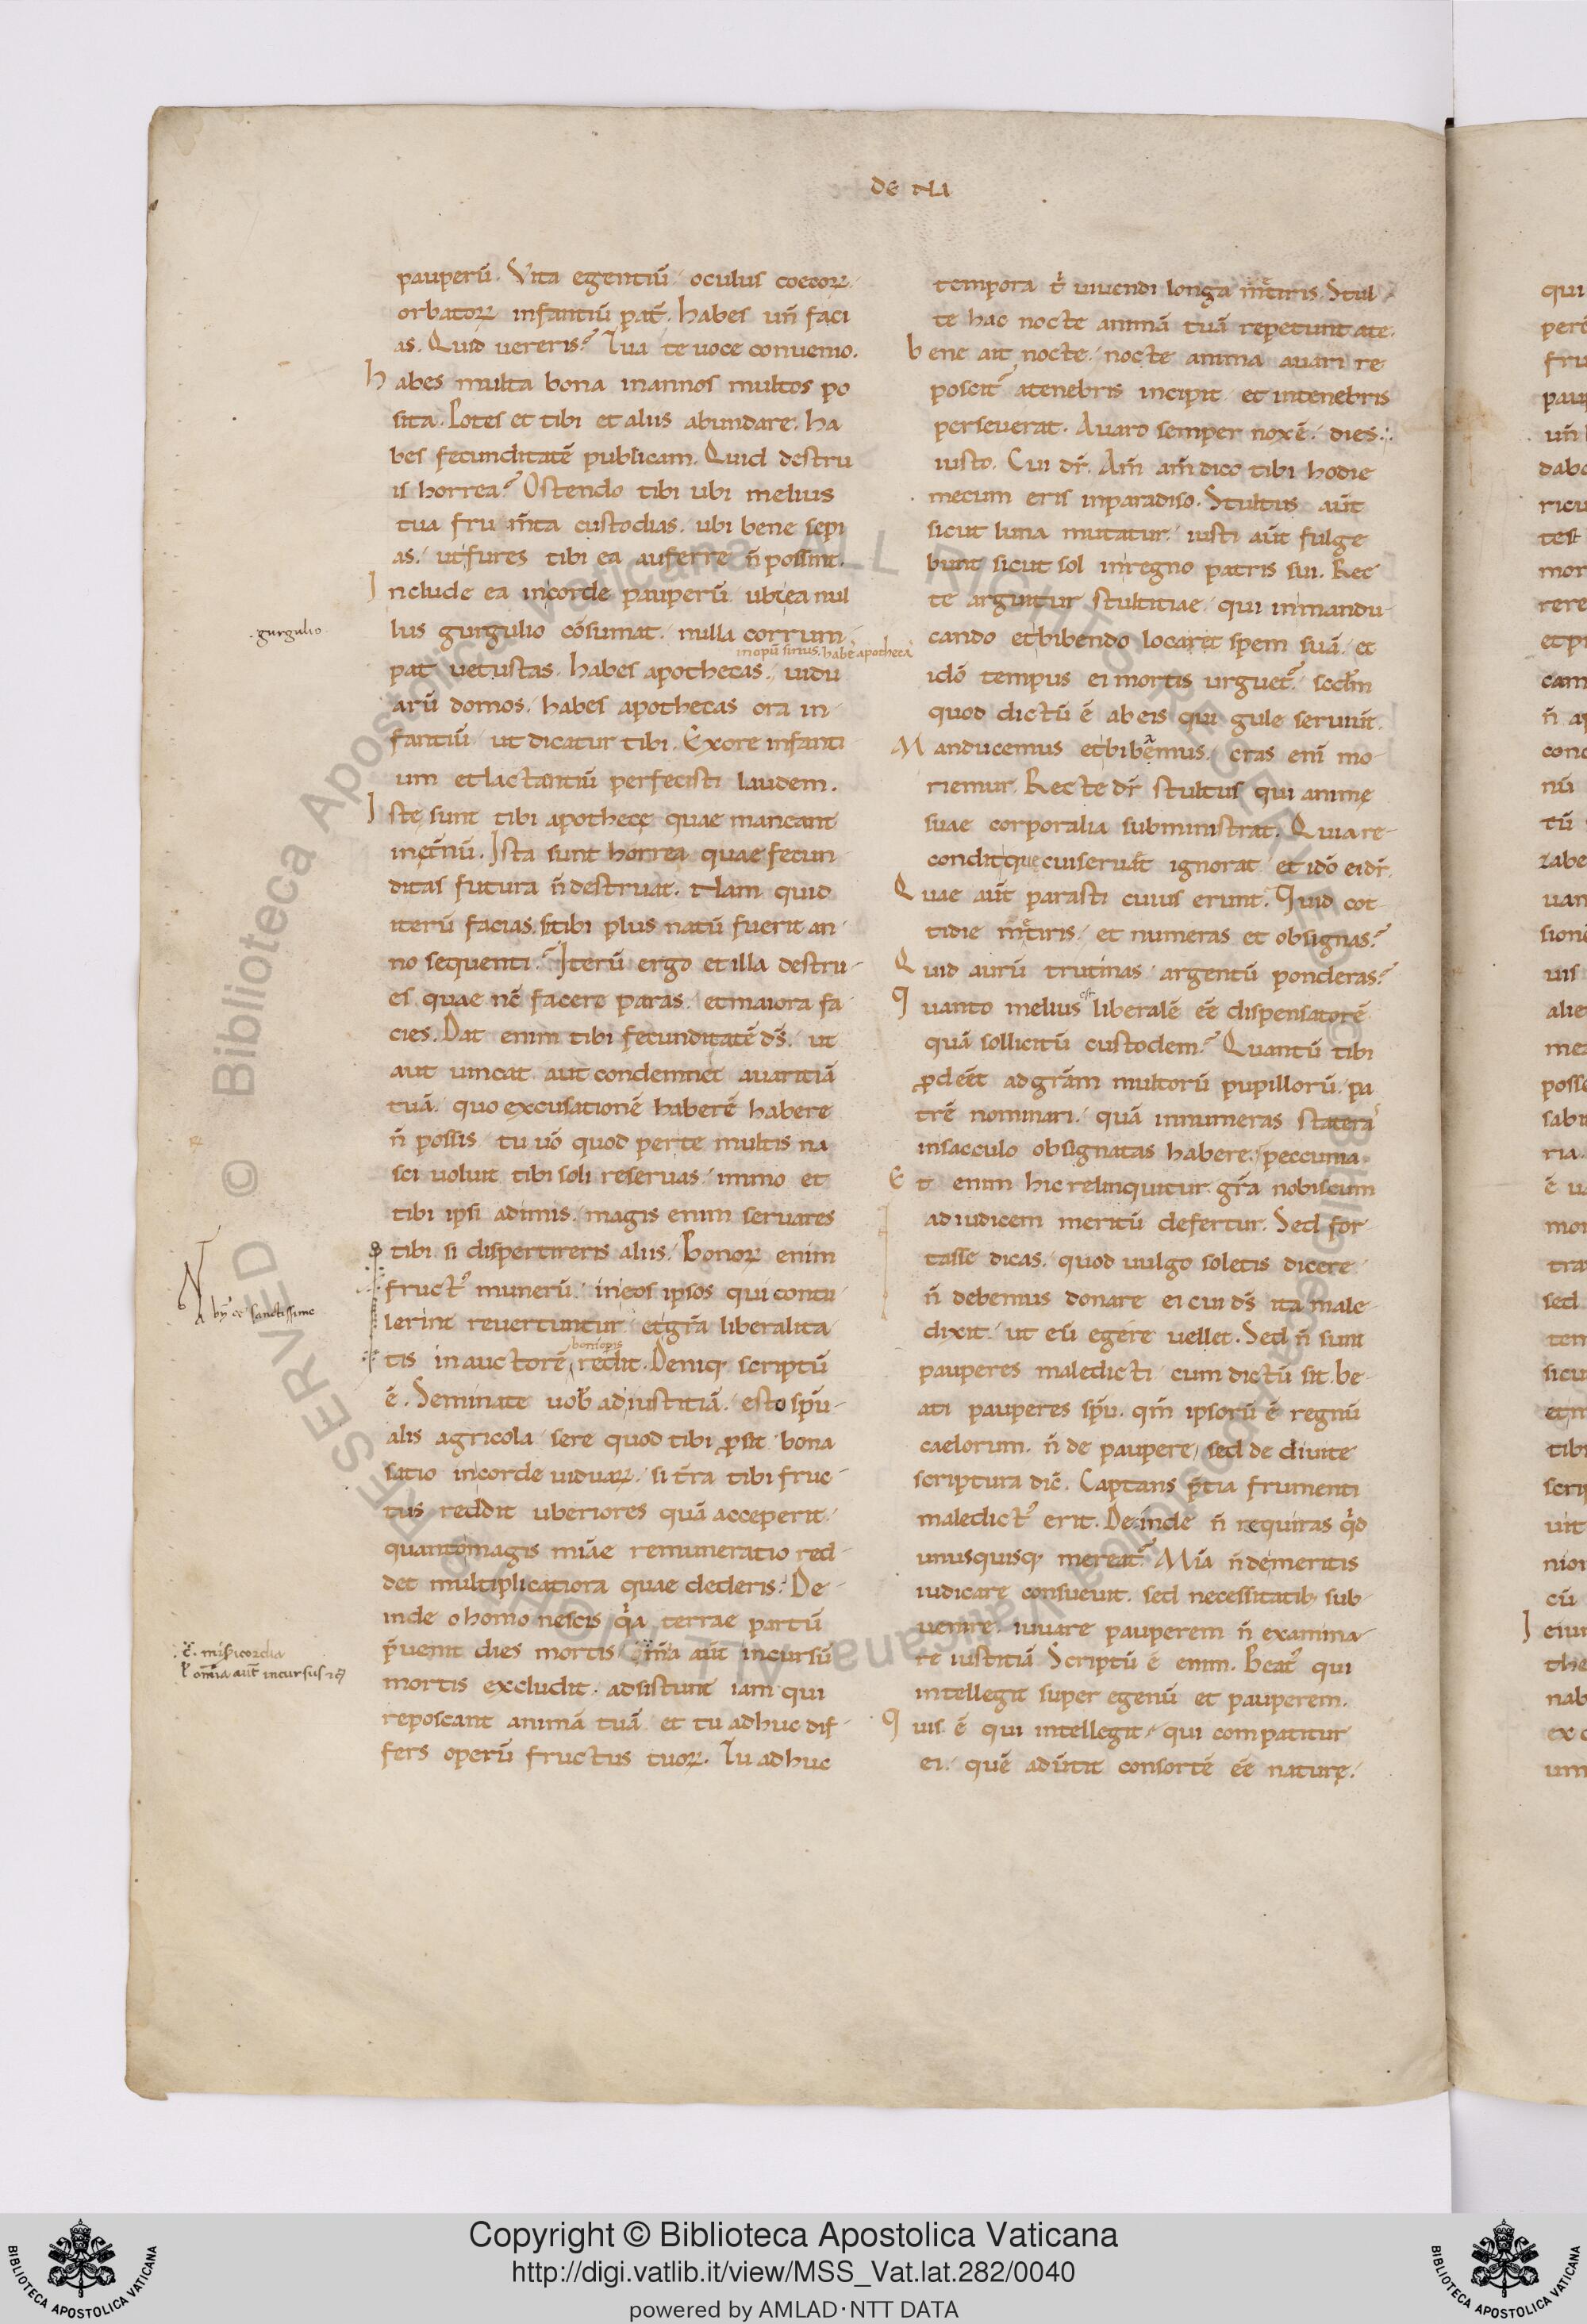 DE NA
pauperū. Vita egentiū oculus coecoꝝ
orbatoꝝ infantiū pat̄. habes un̄ faci
as. Quid uereris? Tua te uoce conuenio.
habes multa bona inannos multos po
sita. Potes et tibi et aliis abundare. ha
bes fecunditatē publicam. Quid destru
is horrea? Ostendo tibi ubi melius
tua fru m̄ta custodias. ubi bene sepi
as. utfures tibi ea auferre n̄ possint.
Include ea incorde pauperū ubi ea nul
gurgulio
lus gurgulio cōsumat. nulla corrum
inopū sinus. habes apotheca
pat uetustas. habes apothecas. uidu
arū domos. habes apothecas ora in
fantiū ut dicatur tibi. Exore infanti
um et lactantiū perfecisti laudem.
Istę sunt tibi apothecę quae maneant
inet̄nū. Ista sunt horrea quae fecun
ditas futura n̄ destruat. Nam quid
iterū facias. sitibi plus natū fuerit an
no sequenti? Iterū ergo et illa destru
es quae nc̄ facere paras. et maiora fa
cies. Dat enim tibi fecunditatē d̄s. ut
aut uincat aut condemnet auaritiā
tuā. quo excusationē haberē habere
n̄ possis. tu uō quod per te multis na
sci uoluit tibi soli reseruas. immo et
tibi ipsi adimis. magis enim seruares
tibi si dispertireris aliis. Bonoꝝ enim
fruct᾿ munerū. in eos ipsos qui contu
lerint reuertuntur et gr̄a liberalita
boni opis
tis in auctorē redit. Deniq; scriptū
ē. Seminate uob̄ ad iustitiā. esto sp̄u
alis agricola sere quod tibi ꝓsit bona
satio incorde uiduaꝝ. si t̄ra tibi fruc
tus reddit uberiores quā acceperit
quantomagis mīae remuneratio red
det multiplicatiora quae dederis? De
inde o homo nescis qͥa terrae partū
p̄uenit dies mortis. m̄a aūt incursū
ē. misericordia
ł om̄ia aūt incursus
mortis excludit. adsistunt iam qui
reposcant animā tuā et tu adhuc dif
fers operū fructus tuoꝝ. Tu adhuc
tempora t͛ uiuendi longa mͭtiris. Stul
te hac nocte animā tuā repetunt ate.
bene ait nocte. nocte anima auari re
poscit᾿ atenebris incipit et intenebris
perseuerat. Auaro semper nox ē. dies
iusto. Cui dr̄. Am̄ am̄ dico tibi hodie
mecum eris inparadiso. Stultus aūt
sicut luna mutatur. iusti aūt fulge
bunt sicut sol inregno patris sui. Rec
te arguitur stultitiae qui inmandu
cando et bibendo locaret spem suā. et
idō tempus ei mortis urguet᾿ scdm̄
quod dictū ē ab eis qui gule seruiūt.
Manducemus et bibamus. cras enī mo
riemur. Recte dr̄ stultus qui animę
suae corporalia subministrat. Quia re
condit quę cui seruat ignorat et idō ei dr̄.
Quae aūt parasti cuius erunt. Quid cot
tidie mͭtiris. et numeras et obsignas?
Quid aurū trutinas argentū ponderas?
est
Quanto melius liberalē eē dispensatorē
quā sollicitū custodem? Quantū tibi
ꝓdeēt ad gr̄am multorū pupillorū pa
trē nominari. quā innumeras statera
insacculo obsignatas habere. peccunia
Et enim hic relinquitur. gr̄a nobiscum
ad iudicem meritū defertur. Sed for
tasse dicas. quod uulgo soletis dicere
n̄ debemus donare ei cui d̄s ita male
dixit. ut eū egere uellet. Sed n̄ sunt
pauperes maledicti cum dictū sit. be
ati pauperes sp̄u. qm̄ ipsorū ē regnū
caelorum. n̄ de paupere sed de diuite
scriptura dic̄. Captans p̄tia frumenti
maledict᾿ erit. Deinde n̄ requiras qͥd
unusquisq; mereat᾿ Mīa n̄ demeritis
iudicare consueuit. sed necessitatib; sub
uenire. iuuare pauperem n̄ examina
re iustitiā Scriptū ē enim. Beat᾿ qui
intellegit super egenū et pauperem.
Quis ē qui intellegit. qui compatitur
ei. quē aduertit consortē eē naturę.
© Biblioteca Apostolica Vaticana ALL RIGHTS RESERVED
Copyright © Biblioteca Apostolica Vaticana
http://digi.vatlib.it/view/MSS_Vat.lat.282/0040
powered by AMLAD·NTT DATA
BIBLIOTECA APOSTOLICA VATICANA
BIBLIOTECA APOSTOLICA VATICANA